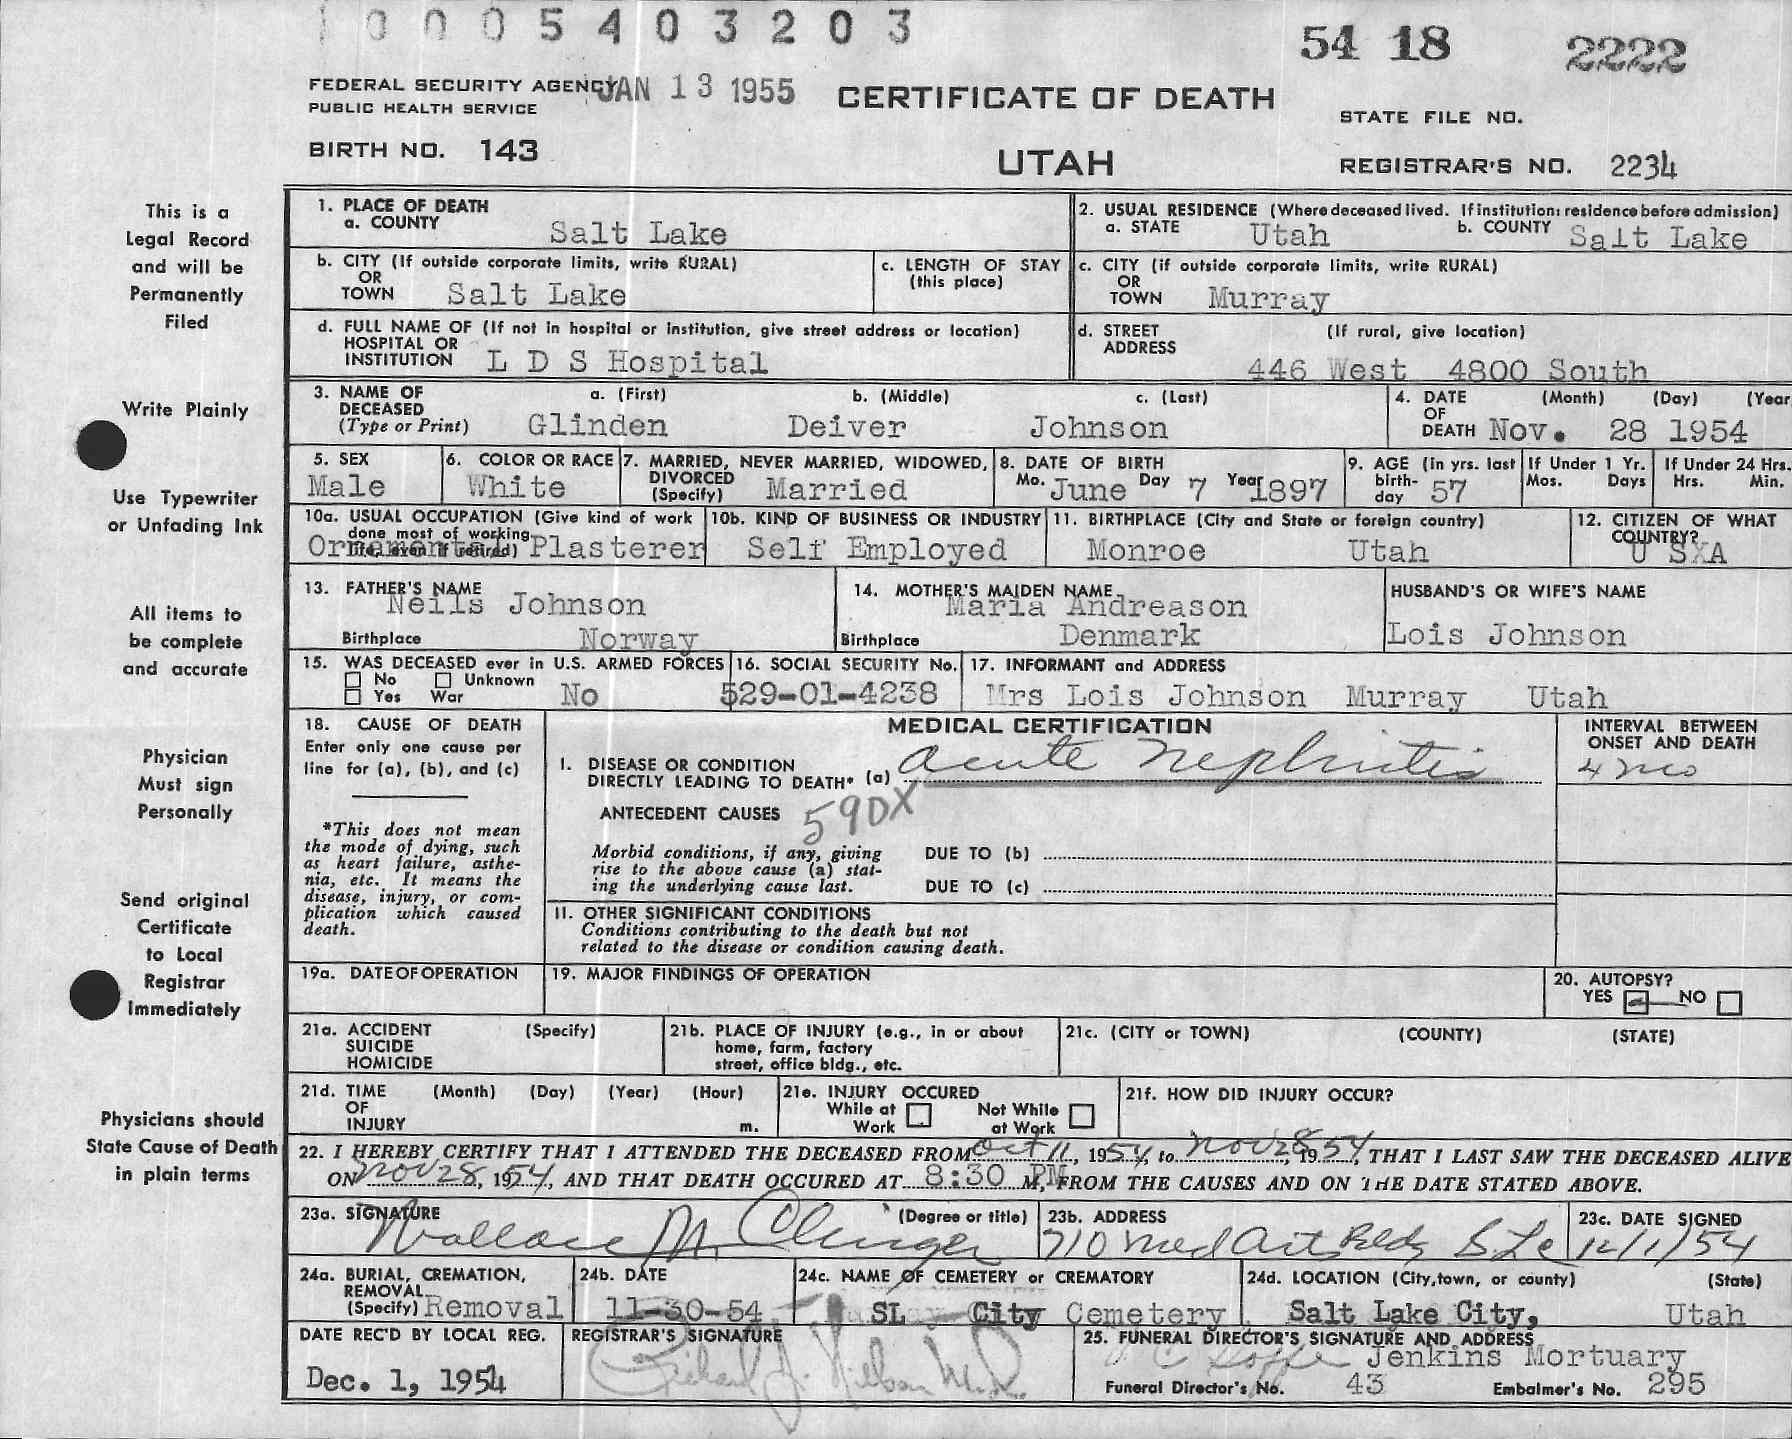 1 0 0 0 5 4 0 3 2 0 3
54 18 2222
FEDERAL SECURITY AGENCY JAN 13 1955 CERTIFICATE OF DEATH
PUBLIC HEALTH SERVICE
STATE FILE NO.
BIRTH NO. 143 UTAH REGISTRAR'S NO. 2234
This is a
Legal Record
and will be
Permanently
Filed
Write Plainly
Use Typewriter
or Unfading Ink
All items to
be complete
and accurate
Physician
Must sign
Personally
Send original
Certificate
to Local
Registrar
Immediately
Physicians should
State Cause of Death
in plain terms
1. PLACE OF DEATH
a. COUNTY Salt Lake
2. USUAL RESIDENCE (Where deceased lived. If institution: residence before admission)
a. STATE Utah b. COUNTY Salt Lake
b. CITY (If outside corporate limits, write RURAL)
OR
TOWN Salt Lake
c. LENGTH OF STAY
(this place)
c. CITY (if outside corporate limits, write RURAL)
OR
TOWN Murray
d. FULL NAME OF (If not in hospital or institution, give street address or location)
HOSPITAL OR
INSTITUTION L D S Hospital
d. STREET (If rural, give location)
ADDRESS
446 West 4800 South
3. NAME OF a. (First) b. (Middle) c. (Last)
DECEASED
(Type or Print) Glinden Deiver Johnson
4. DATE (Month) (Day) (Year
OF
DEATH Nov. 28 1954
5. SEX
Male
6. COLOR OR RACE
White
7. MARRIED, NEVER MARRIED, WIDOWED,
DIVORCED
(Specify) Married
8. DATE OF BIRTH
Mo. June Day 7 Year 1897
9. AGE (In yrs. last
birth-
day 57
If Under 1 Yr.
Mos. Days
If Under 24 Hrs.
Hrs. Min.
10a. USUAL OCCUPATION (Give kind of work
done most of working
life, even if retired)
Ornamental Plasterer
10b. KIND OF BUSINESS OR INDUSTRY
Self Employed
11. BIRTHPLACE (City and State or foreign country)
Monroe Utah
12. CITIZEN OF WHAT
COUNTRY?
U SXA
13. FATHER'S NAME
Neils Johnson
Birthplace Norway
14. MOTHER'S MAIDEN NAME
Maria Andreason
Birthplace Denmark
HUSBAND'S OR WIFE'S NAME
Lois Johnson
15. WAS DECEASED ever in U.S. ARMED FORCES
No Unknown
Yes War No
16. SOCIAL SECURITY No.
529-01-4238
17. INFORMANT and ADDRESS
Mrs Lois Johnson Murray Utah
18. CAUSE OF DEATH
Enter only one cause per
line for (a), (b), and (c)
*This does not mean
the mode of dying, such
as heart failure, asthe-
nia, etc. It means the
disease, injury, or com-
plication which caused
death.
MEDICAL CERTIFICATION
I. DISEASE OR CONDITION
DIRECTLY LEADING TO DEATH* (a) acute nephritis
ANTECEDENT CAUSES 590X
Morbid conditions, if any, giving
rise to the above cause (a) stat-
ing the underlying cause last.
DUE TO (b)
DUE TO (c)
II. OTHER SIGNIFICANT CONDITIONS
Conditions contributing to the death but not
related to the disease or condition causing death.
INTERVAL BETWEEN
ONSET AND DEATH
4 mo
19a. DATE OF OPERATION
19. MAJOR FINDINGS OF OPERATION
20. AUTOPSY?
YES NO
21a. ACCIDENT (Specify)
SUICIDE
HOMICIDE
21b. PLACE OF INJURY (e.g., in or about
home, farm, factory
street, office bldg., etc.
21c. (CITY or TOWN) (COUNTY) (STATE)
21d. TIME (Month) (Day) (Year) (Hour)
OF
INJURY m.
21e. INJURY OCCURED
While at Not While
Work at Work
21f. HOW DID INJURY OCCUR?
22. I HEREBY CERTIFY THAT I ATTENDED THE DECEASED FROM Oct 11, 1954, to Nov 28, 1954, THAT I LAST SAW THE DECEASED ALIVE
ON Nov 28, 1954, AND THAT DEATH OCCURED AT 8:30 PM M, FROM THE CAUSES AND ON THE DATE STATED ABOVE.
23a. SIGNATURE (Degree or title)
Wallace M Clinger
23b. ADDRESS
710 Med Arts Bldg S L C
23c. DATE SIGNED
12/1/54
24a. BURIAL, CREMATION,
REMOVAL
(Specify) Removal
24b. DATE
11-30-54
24c. NAME OF CEMETERY or CREMATORY
SL City Cemetery
24d. LOCATION (City, town, or county) (State)
Salt Lake City, Utah
DATE REC'D BY LOCAL REG.
Dec. 1, 1954
REGISTRAR'S SIGNATURE
25. FUNERAL DIRECTOR'S SIGNATURE AND ADDRESS
Jenkins Mortuary
Funeral Director's No. 43 Embalmer's No. 295